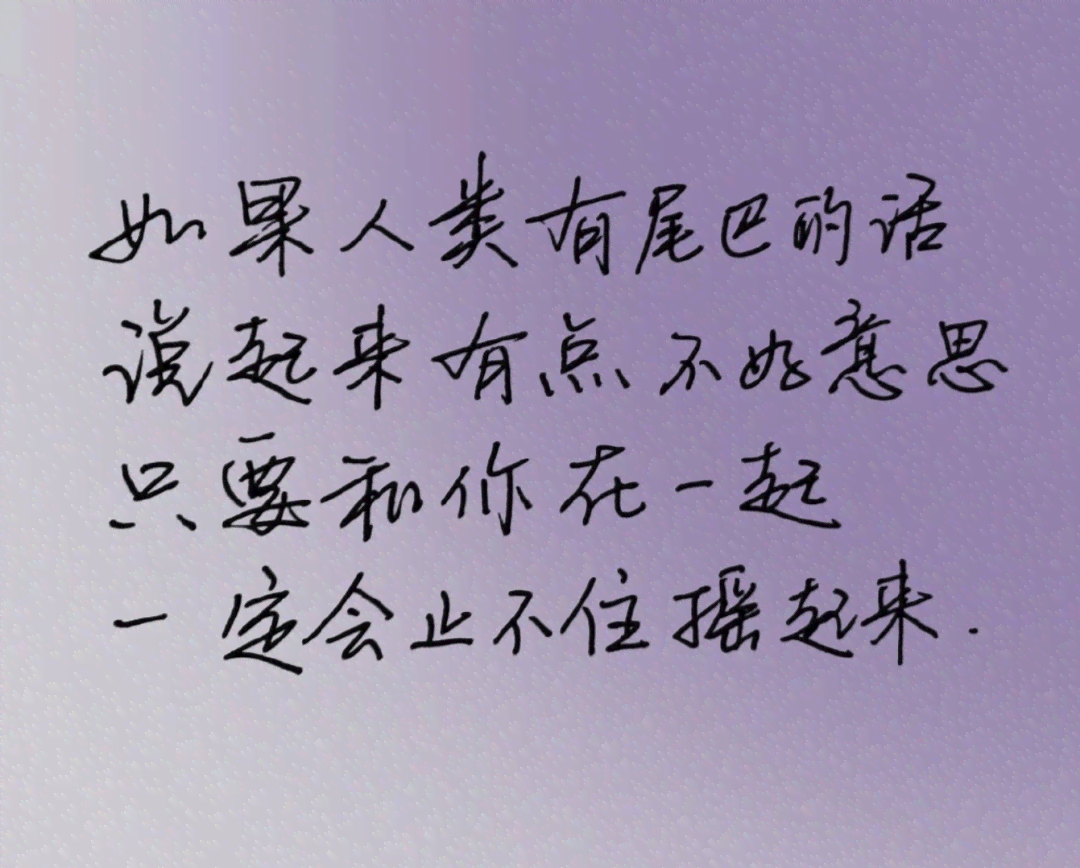 如果人类有尾巴的话
说起来有点不好意思
只要和你在一起
一定会止不住摇起来.